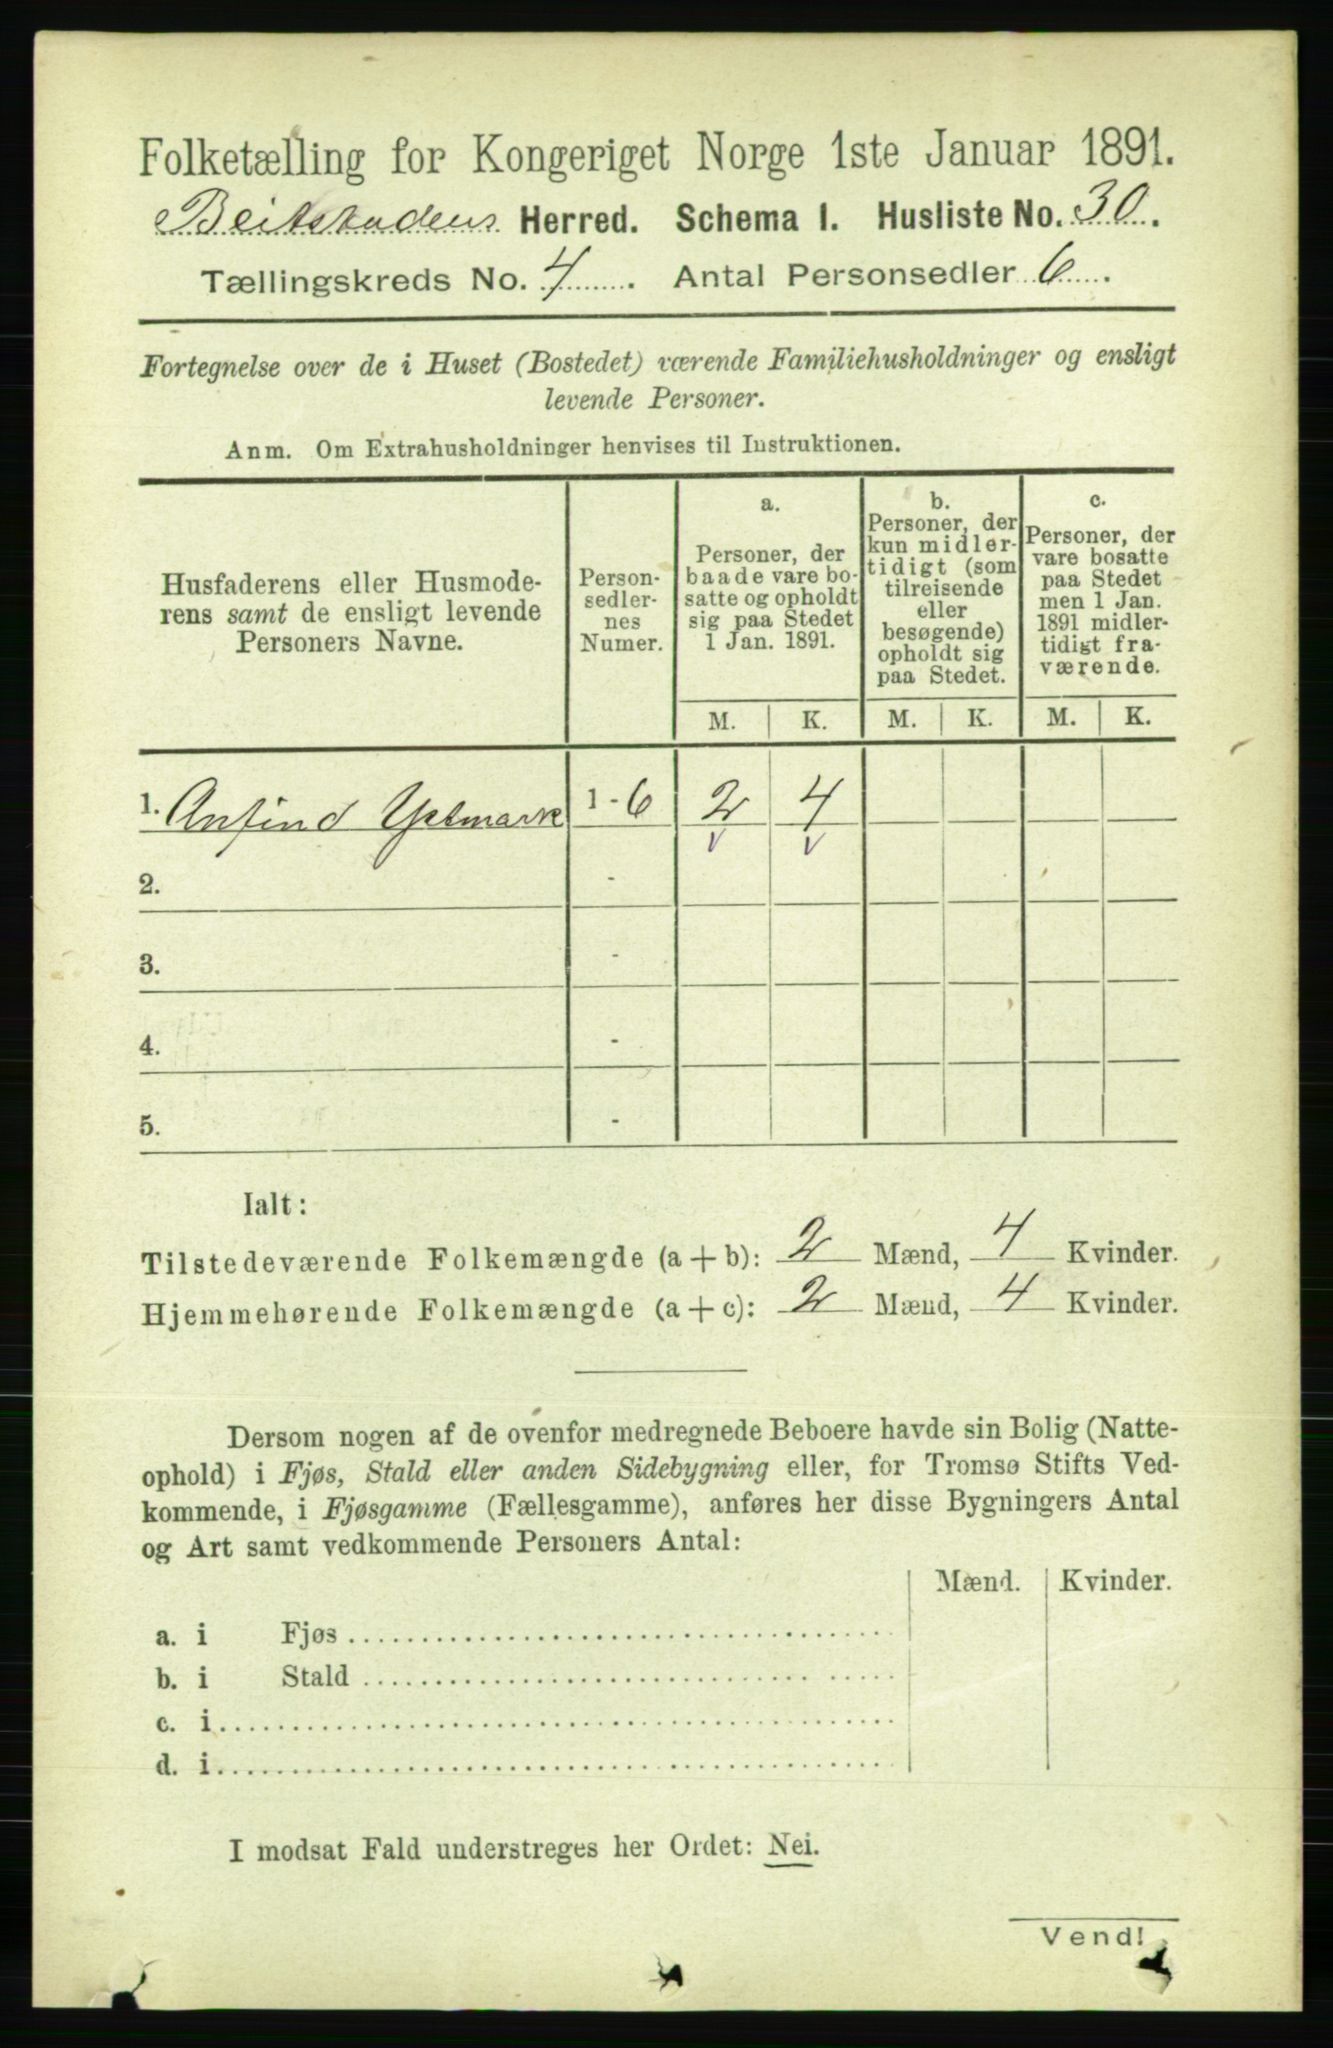 Folketælling for Kongeriget Norge 1ste Januar 1891.
Beitstadens Herred. Schema 1. Husliste No. 30.
Tællingskreds No. 4. Antal Personsedler 6.
Fortegnelse over de i Huset (Bostedet) værende Familiehusholdninger og ensligt
levende Personer.
Anm. Om Extrahusholdninger henvises til Instruktionen.
Husfaderens eller Husmode-
rens samt de ensligt levende
Personers Navne.
Person-
sedler-
nes
Numer.
a.
Personer, der
baade vare bo-
satte og opholdt
sig paa Stedet
1 Jan. 1891.
b.
Personer, der
kun midler-
tidigt (som
tilreisende
eller
besøgende)
opholdt sig
paa Stedet.
c.
Personer, der
vare bosatte
paa Stedet
men 1 Jan.
1891 midler-
tidigt fra-
værende.
M. K. M. K. M. K.
1. Anfind 1 - 6 2 4
2. -
3. -
4. -
5. -
Ialt:
Tilstedeværende Folkemængde (a + b): 2 Mænd, 4 Kvinder.
Hjemmehørende Folkemængde (a + c): 2 Mænd, 4 Kvinder.
Dersom nogen af de ovenfor medregnede Beboere havde sin Bolig (Natte-
ophold) i Fjøs, Stald eller anden Sidebygning eller, for Tromsø Stifts Ved-
kommende, i Fjøsgamme (Fællesgamme), anføres her disse Bygningers Antal
og Art samt vedkommende Personers Antal:
Mænd. Kvinder.
a. i Fjøs
b. i Stald
c. i
d. i
I modsat Fald understreges her Ordet: Nei.
Vend!